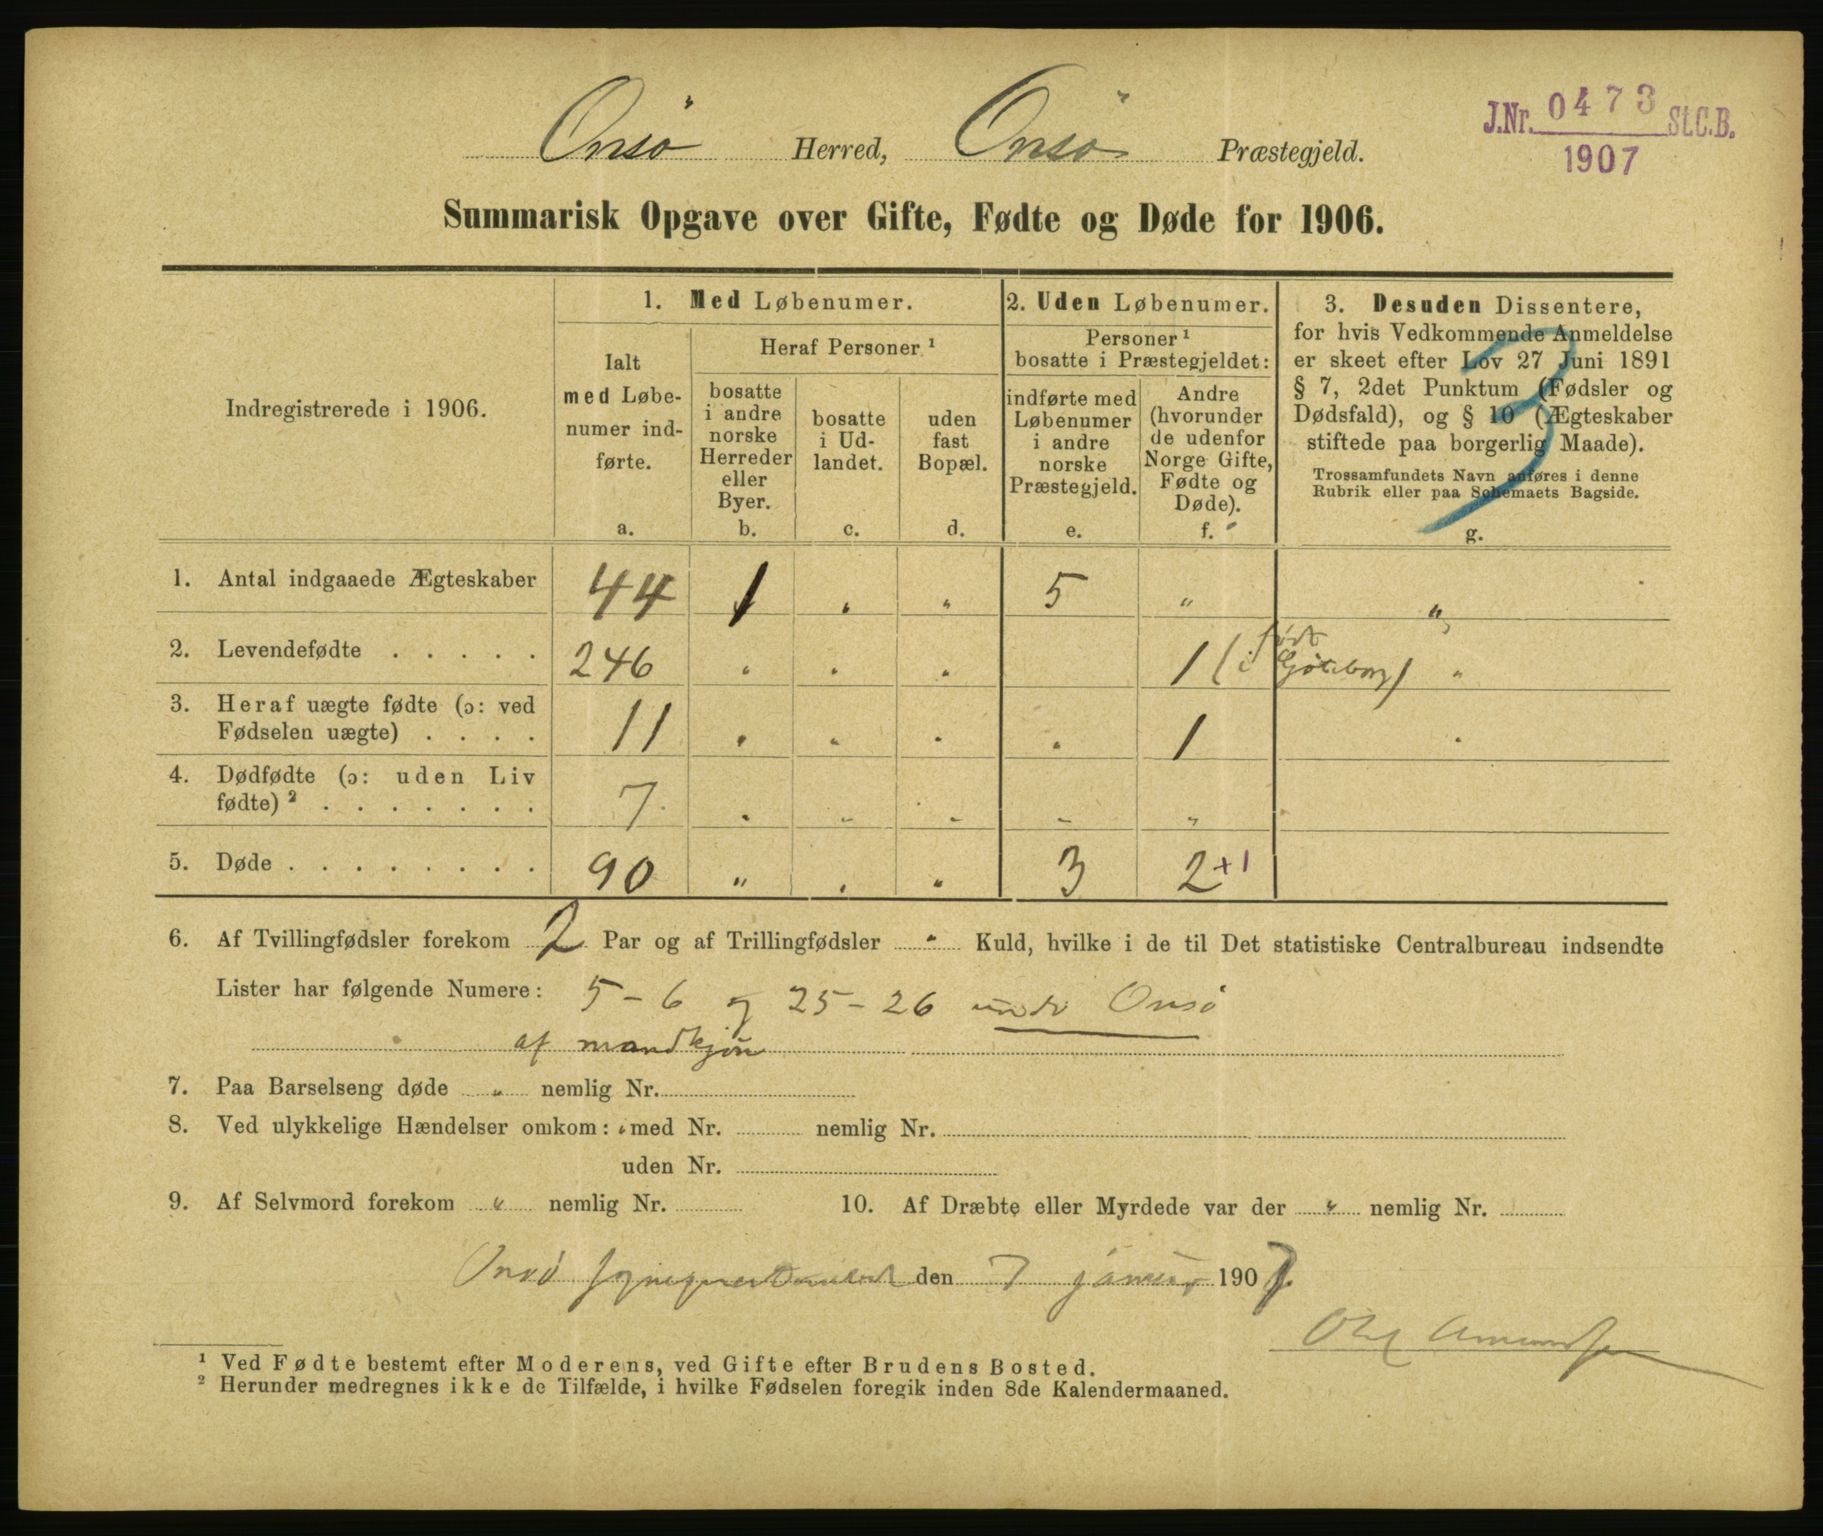 Onsö Herred, Onsö Præstegjeld.
J.Nr. 0473 St.C.B.
1907
Summarisk Opgave over Gifte, Fødte og Døde for 1906.
Indregistrerede i 1906.
1. Med Løbenumer.
Ialt
med Løbe-
numer ind-
førte.
a.
Heraf Personer ¹
bosatte
i andre
norske
Herreder
eller
Byer.
b.
bosatte
i Ud-
landet.
c.
uden
fast
Bopæl.
d.
2. Uden Løbenumer.
Personer ¹
bosatte i Præstegjeldet:
indførte med
Løbenumer
i andre
norske
Præstegjeld.
e.
Andre
(hvorunder
de udenfor
Norge Gifte,
Fødte og
Døde).
f.
3. Desuden Dissentere,
for hvis Vedkommende Anmeldelse
er skeet efter Lov 27 Juni 1891
§ 7, 2det Punktum (Fødsler og
Dødsfald), og § 10 (Ægteskaber
stiftede paa borgerlig Maade).
Trossamfundets Navn anføres i denne
Rubrik eller paa Schemaets Bagside.
g.
1. Antal indgaaede Ægteskaber 44 1 " " 5 " "
2. Levendefødte . . . . . 246 " " " 1 (født i Gøteborg) "
3. Heraf uægte fødte (ɔ: ved
Fødselen uægte) . . . . 11 " " " " 1 "
4. Dødfødte (ɔ: uden Liv
fødte) ² . . . . . . . 7 " " " " "
5. Døde . . . . . . . . 90 " " " 3 2+1
6. Af Tvillingfødsler forekom 2 Par og af Trillingfødsler " Kuld, hvilke i de til Det statistiske Centralbureau indsendte
Lister har følgende Numere: 5-6 og 25-26 under Onsö
af mandkjøn
7. Paa Barselseng døde " nemlig Nr.
8. Ved ulykkelige Hændelser omkom: " med Nr. nemlig Nr.
uden Nr.
9. Af Selvmord forekom " nemlig Nr. 10. Af Dræbte eller Myrdede var der " nemlig Nr.
Onsö den 7 januar 1907.
Amundsen
¹ Ved Fødte bestemt efter Moderens, ved Gifte efter Brudens Bosted.
² Herunder medregnes ikke de Tilfælde, i hvilke Fødselen foregik inden 8de Kalendermaaned.